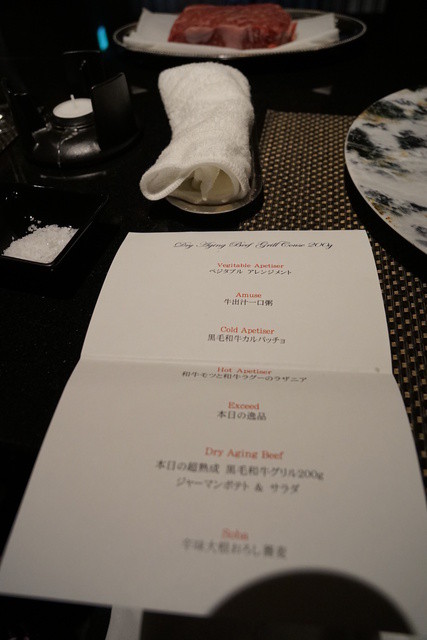 Dry Aging Beef Grill Couse 200g
Vegitable Apetiser
ベジタブル アレンジメント
Amuse
牛出汁一口粥
Cold Apetiser
黒毛和牛カルパッチョ
Hot Apetiser
和牛モツと和牛ラグーのラザニア
Exceed
本日の逸品
Dry Aging Beef
本日の超熟成 黒毛和牛グリル200g
ジャーマンポテト & サラダ
Soba
辛味大根おろし蕎麦